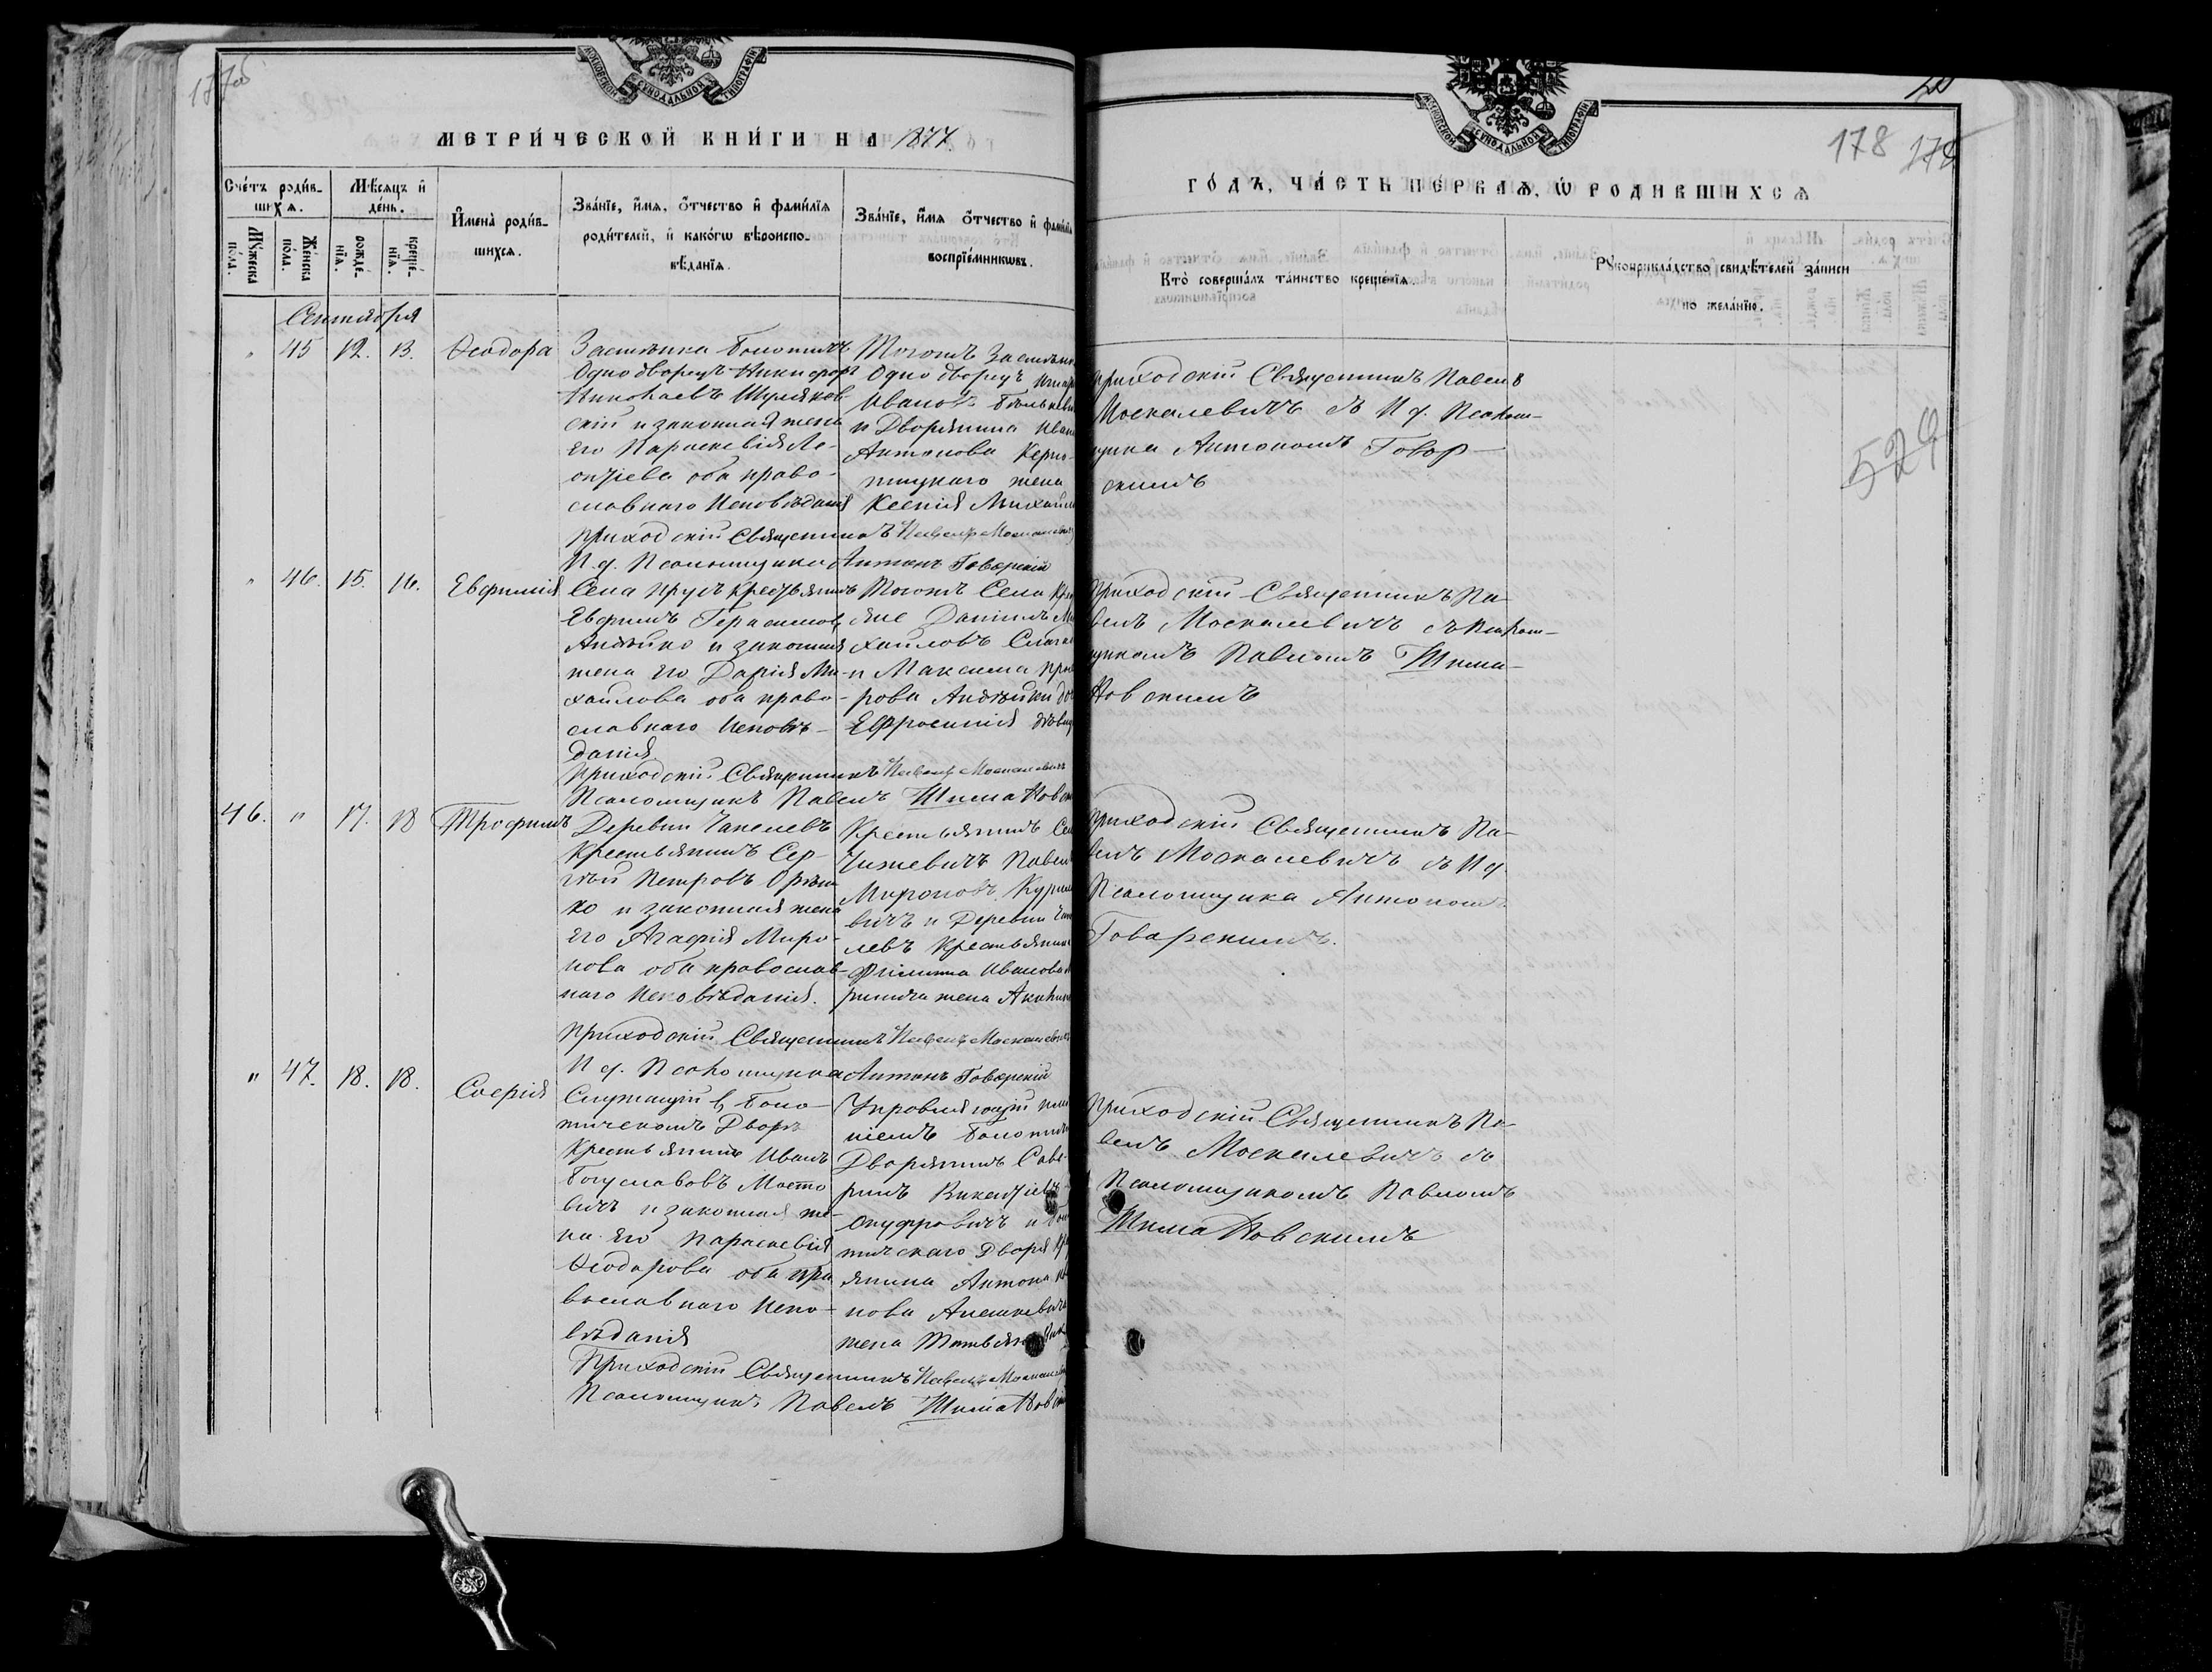 177об
МЕТРИ́ЧЕСКОЙ КНИ́ГИ НА 1877.
Сче́тъ роди́в-
шихся.
Мѣ́сяцъ и҆
де́нь.
И҆мена̀ роди́в-
шихся.
Зва́нїе, и҆́мя, ѻ҆́тчество и҆ фами́лїя
роди́телей, и҆ како́гѡ вѣроиспо-
вѣ́данїя.
Зва́нїе, и҆́мя ѻ҆́тчество и҆ фами́лїя
воспрїе́мникѡвъ.
Мꙋ́жеска по́ла.
Же́нска по́ла.
рожде́-нїя.
креще́-нїя.
Сентября
" 45 12. 13. Ѳеодора
Застѣнка Болотичъ
Однодворецъ Никифоръ
Николаевъ Шуляков-
скій и законная жена
его Параскевія Ле-
онтіева оба право-
славнаго исповѣданія
Тогожъ
Однодворецъ
Ивановъ
и Дворянина Ивана
Антонова
жена
Ксенія
Приходскій Священникъ Павелъ Москалевичъ
И. д. Псаломщика Антонъ Говорскій
" 46. 15. 16. Евфимія
Села Прусъ крестьянинъ
Евфимъ Герасимовъ
и законная
жена его Дарія Ми-
хайлова оба право-
славнаго исповѣ-
данія
Тогожъ Села
Даніилъ Ми
хайловъ
и Максима
рова
Евфросинія дѣвица
Приходскій Священникъ Павелъ Москалевичъ
Псаломщикъ Павелъ Шимановскій
46. " 17. 18 Трофимъ
Деревни Чапелевъ
Крестьянинъ Сер-
гѣй Петровъ Орѣш
ко и законная жена
его Агафія Миро-
нова оба православ-
наго исповѣданія.
Крестьянинъ Села
Чижевичъ Павелъ
Мироновъ
вичъ и Деревни Чапе
левъ Крестьянина
Филиппа Иванова
жена
Приходскій Священникъ Павелъ Москалевичъ
И. д. Псаломщика Антонъ Говорскій
" 47. 18. 18. Софія
Служащій в Боло-
тическомъ Дворѣ
Крестьянинъ Иванъ
Богуславовъ Мосто
вичъ и законная же-
на его Параскевія
Ѳеодорова оба пра
вославнаго испо-
вѣданія
Управляющій имѣ
ніемъ
Дворянинъ Саве-
ринъ Викентіевъ
Онуфровичъ и
тичскаго Двора
янина Антона
нова Алешкевича
жена Татьяна
Приходскій Священникъ Павелъ Москалевичъ
Псаломщикъ Павелъ Шимановскій
178
ГО́ДЪ, ЧА́СТЬ ПЕ́РВАЯ, Ѡ҆ РОДИ́ВШИХСЯ
Кто̀ соверша́лъ та́инство креще́нїя.
Рꙋкоприкла́дство свидѣ́телей за́писи
по жела́нїю.
Приходскій Священникъ Павелъ
Москалевичъ съ И. д. Псалом-
щика Антономъ Говор-
скимъ
529
Приходскій Священникъ Па-
велъ Москалевичъ съ Псалом-
щикомъ Павломъ Шима-
новскимъ
Приходскій Священникъ Па-
велъ Москалевичъ съ И. д.
Псаломщика Антономъ
Говорскимъ.
Приходскій Священникъ Па-
велъ Москалевичъ съ
Псаломщикомъ Павломъ
Шимановскимъ